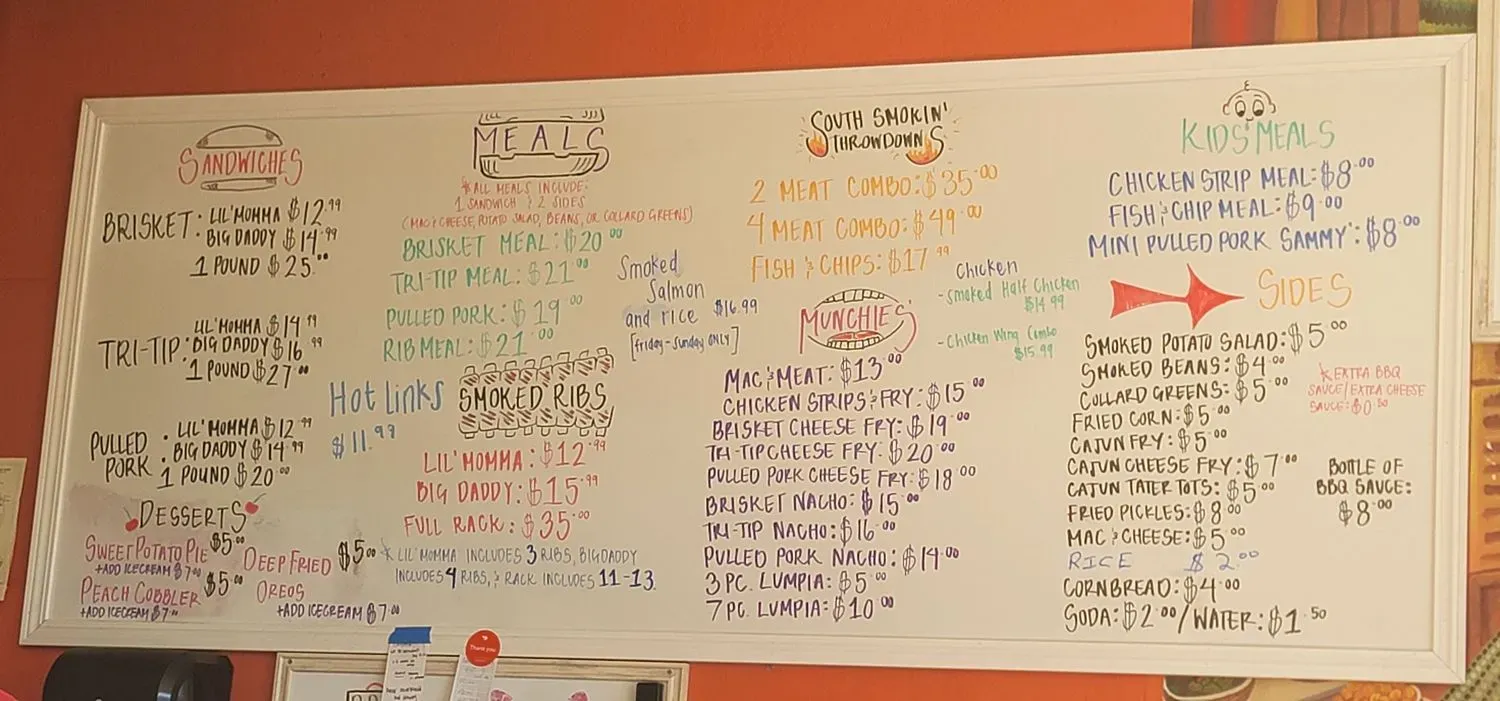 SANDWICHES
BRISKET: LIL'MOMMA $12.99
BIG DADDY $14.99
1 POUND $25.00
TRI-TIP: LIL'MOMMA $14.99
BIG DADDY $16.99
1 POUND $27.00
PULLED PORK: LIL'MOMMA $12.99
BIG DADDY $14.99
1 POUND $20.00
Hot Links
$11.99
DESSERTS
SWEET POTATO PIE $5.00
+ADD ICECREAM $7.00
PEACH COBBLER $5.00
+ADD ICECREAM $7.00
DEEP FRIED $5.00
OREOS
+ADD ICECREAM $7.00
MEALS
*ALL MEALS INCLUDE:
1 SANDWICH & 2 SIDES
(MAC & CHEESE, POTATO SALAD, BEANS, OR COLLARD GREENS)
BRISKET MEAL: $20.00
TRI-TIP MEAL: $21.00
PULLED PORK: $19.00
RIB MEAL: $21.00
Smoked
Salmon
and rice $16.99
[friday-Sunday ONLY]
SMOKED RIBS
LIL'MOMMA: $12.99
BIG DADDY: $15.99
FULL RACK: $35.00
* LIL'MOMMA INCLUDES 3 RIBS, BIGDADDY
INCLUDES 4 RIBS, & RACK INCLUDES 11-13.
SOUTH SMOKIN'
THROWDOWNS
2 MEAT COMBO: $35.00
4 MEAT COMBO: $49.00
FISH & CHIPS: $17.99
Chicken
- Smoked Half Chicken
$14.99
- Chicken Wing Combo
$15.99
MUNCHIES'
MAC & MEAT: $13.00
CHICKEN STRIPS & FRY: $15.00
BRISKET CHEESE FRY: $19.00
TRI-TIP CHEESE FRY: $20.00
PULLED PORK CHEESE FRY: $18.00
BRISKET NACHO: $15.00
TRI-TIP NACHO: $16.00
PULLED PORK NACHO: $14.00
3 PC. LUMPIA: $5.00
7 PC. LUMPIA: $10.00
KIDS' MEALS
CHICKEN STRIP MEAL: $8.00
FISH & CHIP MEAL: $9.00
MINI PULLED PORK SAMMY': $8.00
SIDES
SMOKED POTATO SALAD: $5.00
SMOKED BEANS: $4.00
COLLARD GREENS: $5.00
FRIED CORN: $5.00
CAJUN FRY: $5.00
CAJUN CHEESE FRY: $7.00
CAJUN TATER TOTS: $5.00
FRIED PICKLES: $8.00
MAC & CHEESE: $5.00
RICE $2.00
CORNBREAD: $4.00
SODA: $2.00/WATER: $1.50
*EXTRA BBQ
SAUCE/EXTRA CHEESE
SAUCE: $0.50
BOTTLE OF
BBQ SAUCE:
$8.00
Thank you